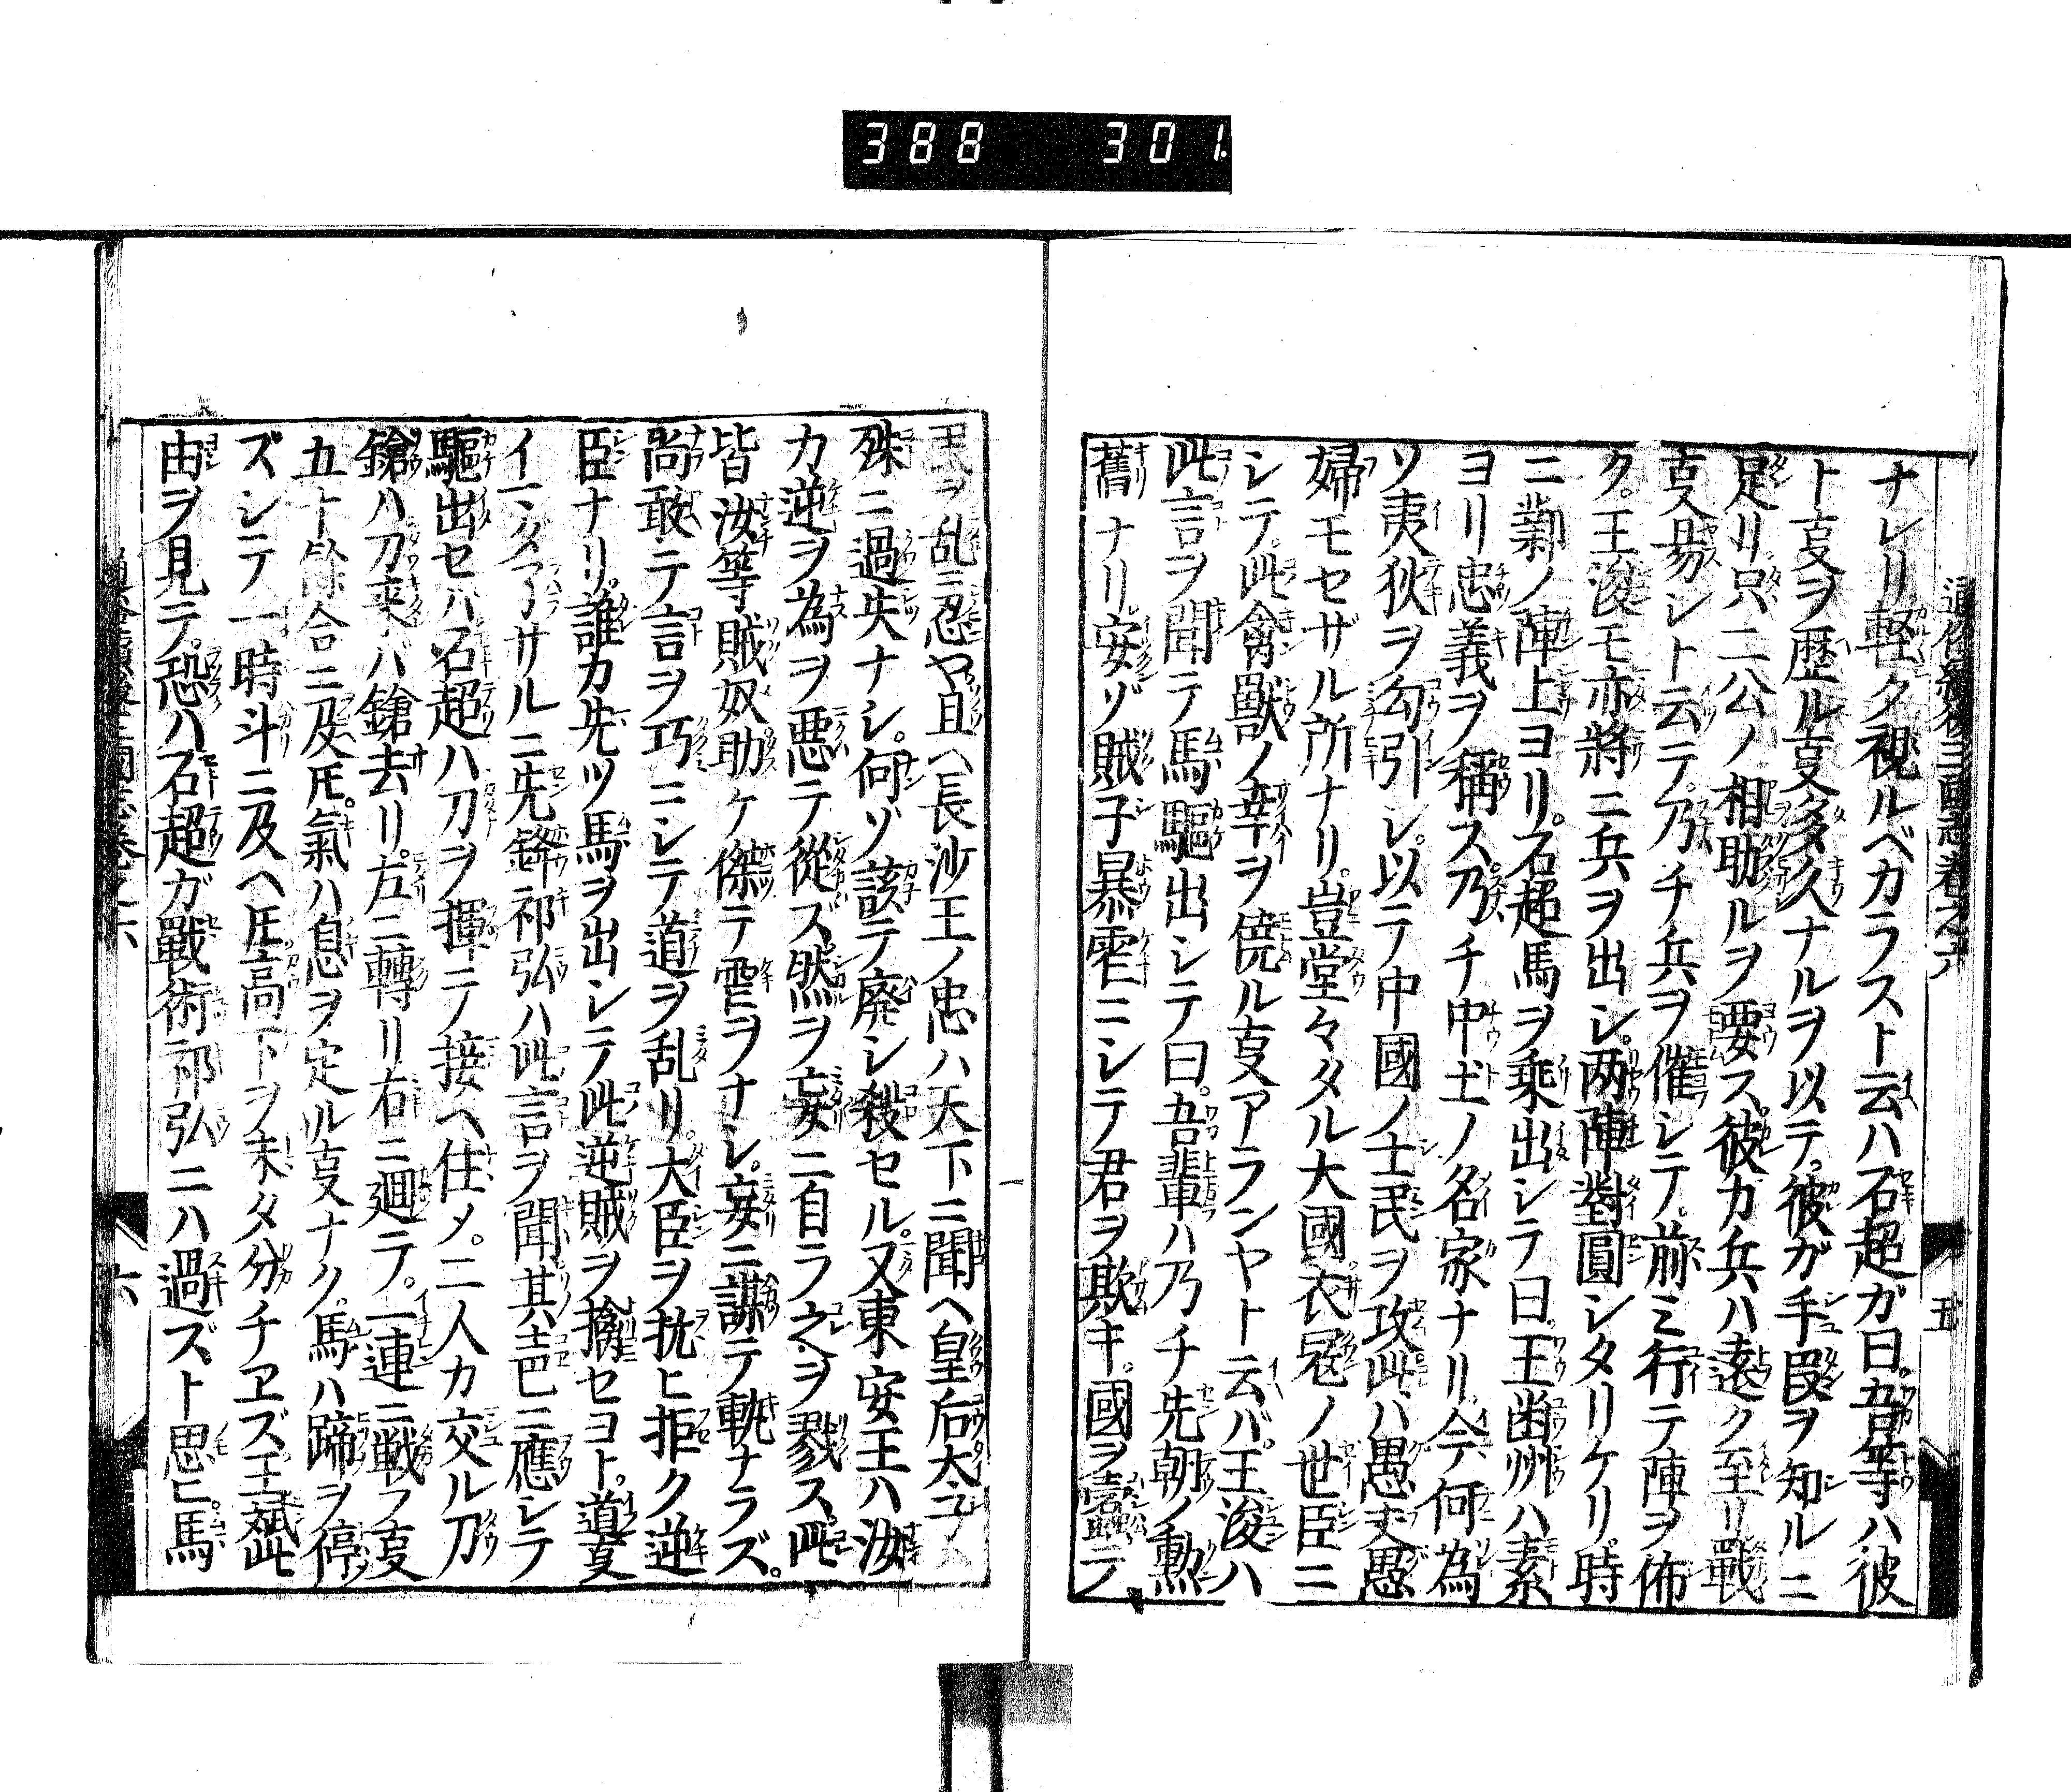 388 301
通俗續後三國志卷之六
五
ナレリ輕ク視ルベカラスト云ハ石超カ曰。吾等ハ彼
ト㕝ヲ歴ル㕝多久ナルヲ以テ。彼ガ手段ヲ知ルニ
足リ。只二公ノ相助ルヲ要ス。彼カ兵ハ遠ク至リ戰
㕝易シト云テ。乃チ兵ヲ催シテ。前ミ行テ陣ヲ佈
ク。王浚モ亦將ニ兵ヲ出シ。两陣對圓シタリケリ。時
ニ鄴ノ陣上ヨリ。石超馬ヲ乗出シテ曰。王幽州ハ素
ヨリ忠義ヲ稱ス。乃チ中土ノ名家ナリ。今何為
ソ夷狄ヲ勾引シ。以テ中國ノ士民ヲ攻。此ハ愚夫愚
婦モセザル所ナリ。豈堂々タル大國衣冠ノ世臣ニ
シテ。此禽獸ノ幸ヲ僥ル㕝アランヤト云バ。王浚ハ
此言ヲ聞テ馬驅出シテ曰。吾輩ハ乃チ先朝ノ勲
舊ナリ。安ゾ賊子暴虐ニシテ君ヲ欺キ。國ヲ蠹ニノ
民ヲ乱ニ忍ヤ且ヘ長沙王ノ忠ハ天下ニ聞ヘ皇后太子ハ
殊ニ過失ナシ。何ゾ該テ廃シ殺セル。又東安王ハ汝
カ逆ヲ為ヲ悪テ從ズ。然ヲ妄ニ自ラ之ヲ戮ス。此
皆汝等賊奴助ケ傑テ虐ヲナシ。妄ニ謀テ軌ナラズ。
尚敢テ言ヲ巧ニシテ道ヲ乱リ。大臣ヲ抗ヒ拒ク逆
臣ナリ。誰カ先ツ馬ヲ出シテ此逆賊ヲ擒セヨト。道㕝
イーダ了サルニ先鋒祁弘ハ此言ヲ聞其声ニ應シテ
驅出セハ石超ハ刀ヲ揮ニノ接ヘ住メ。二人カ交ル刀
鎗ハ刀来バ鎗去リ。左ニ轉リ右ニ廻テ。一連ニ戦フ㕝
五十餘合ニ及𪜈。氣ハ息ヲ定ル㕝ナク。馬ハ蹄ヲ停
ズシテ一時斗ニ及ヘ𪜈高下ヲ未タ分チヱズ。王斌此
由ヲ見テ。恐ハ石超ガ戰術祁弘ニハ過ズト思ヒ。馬
六